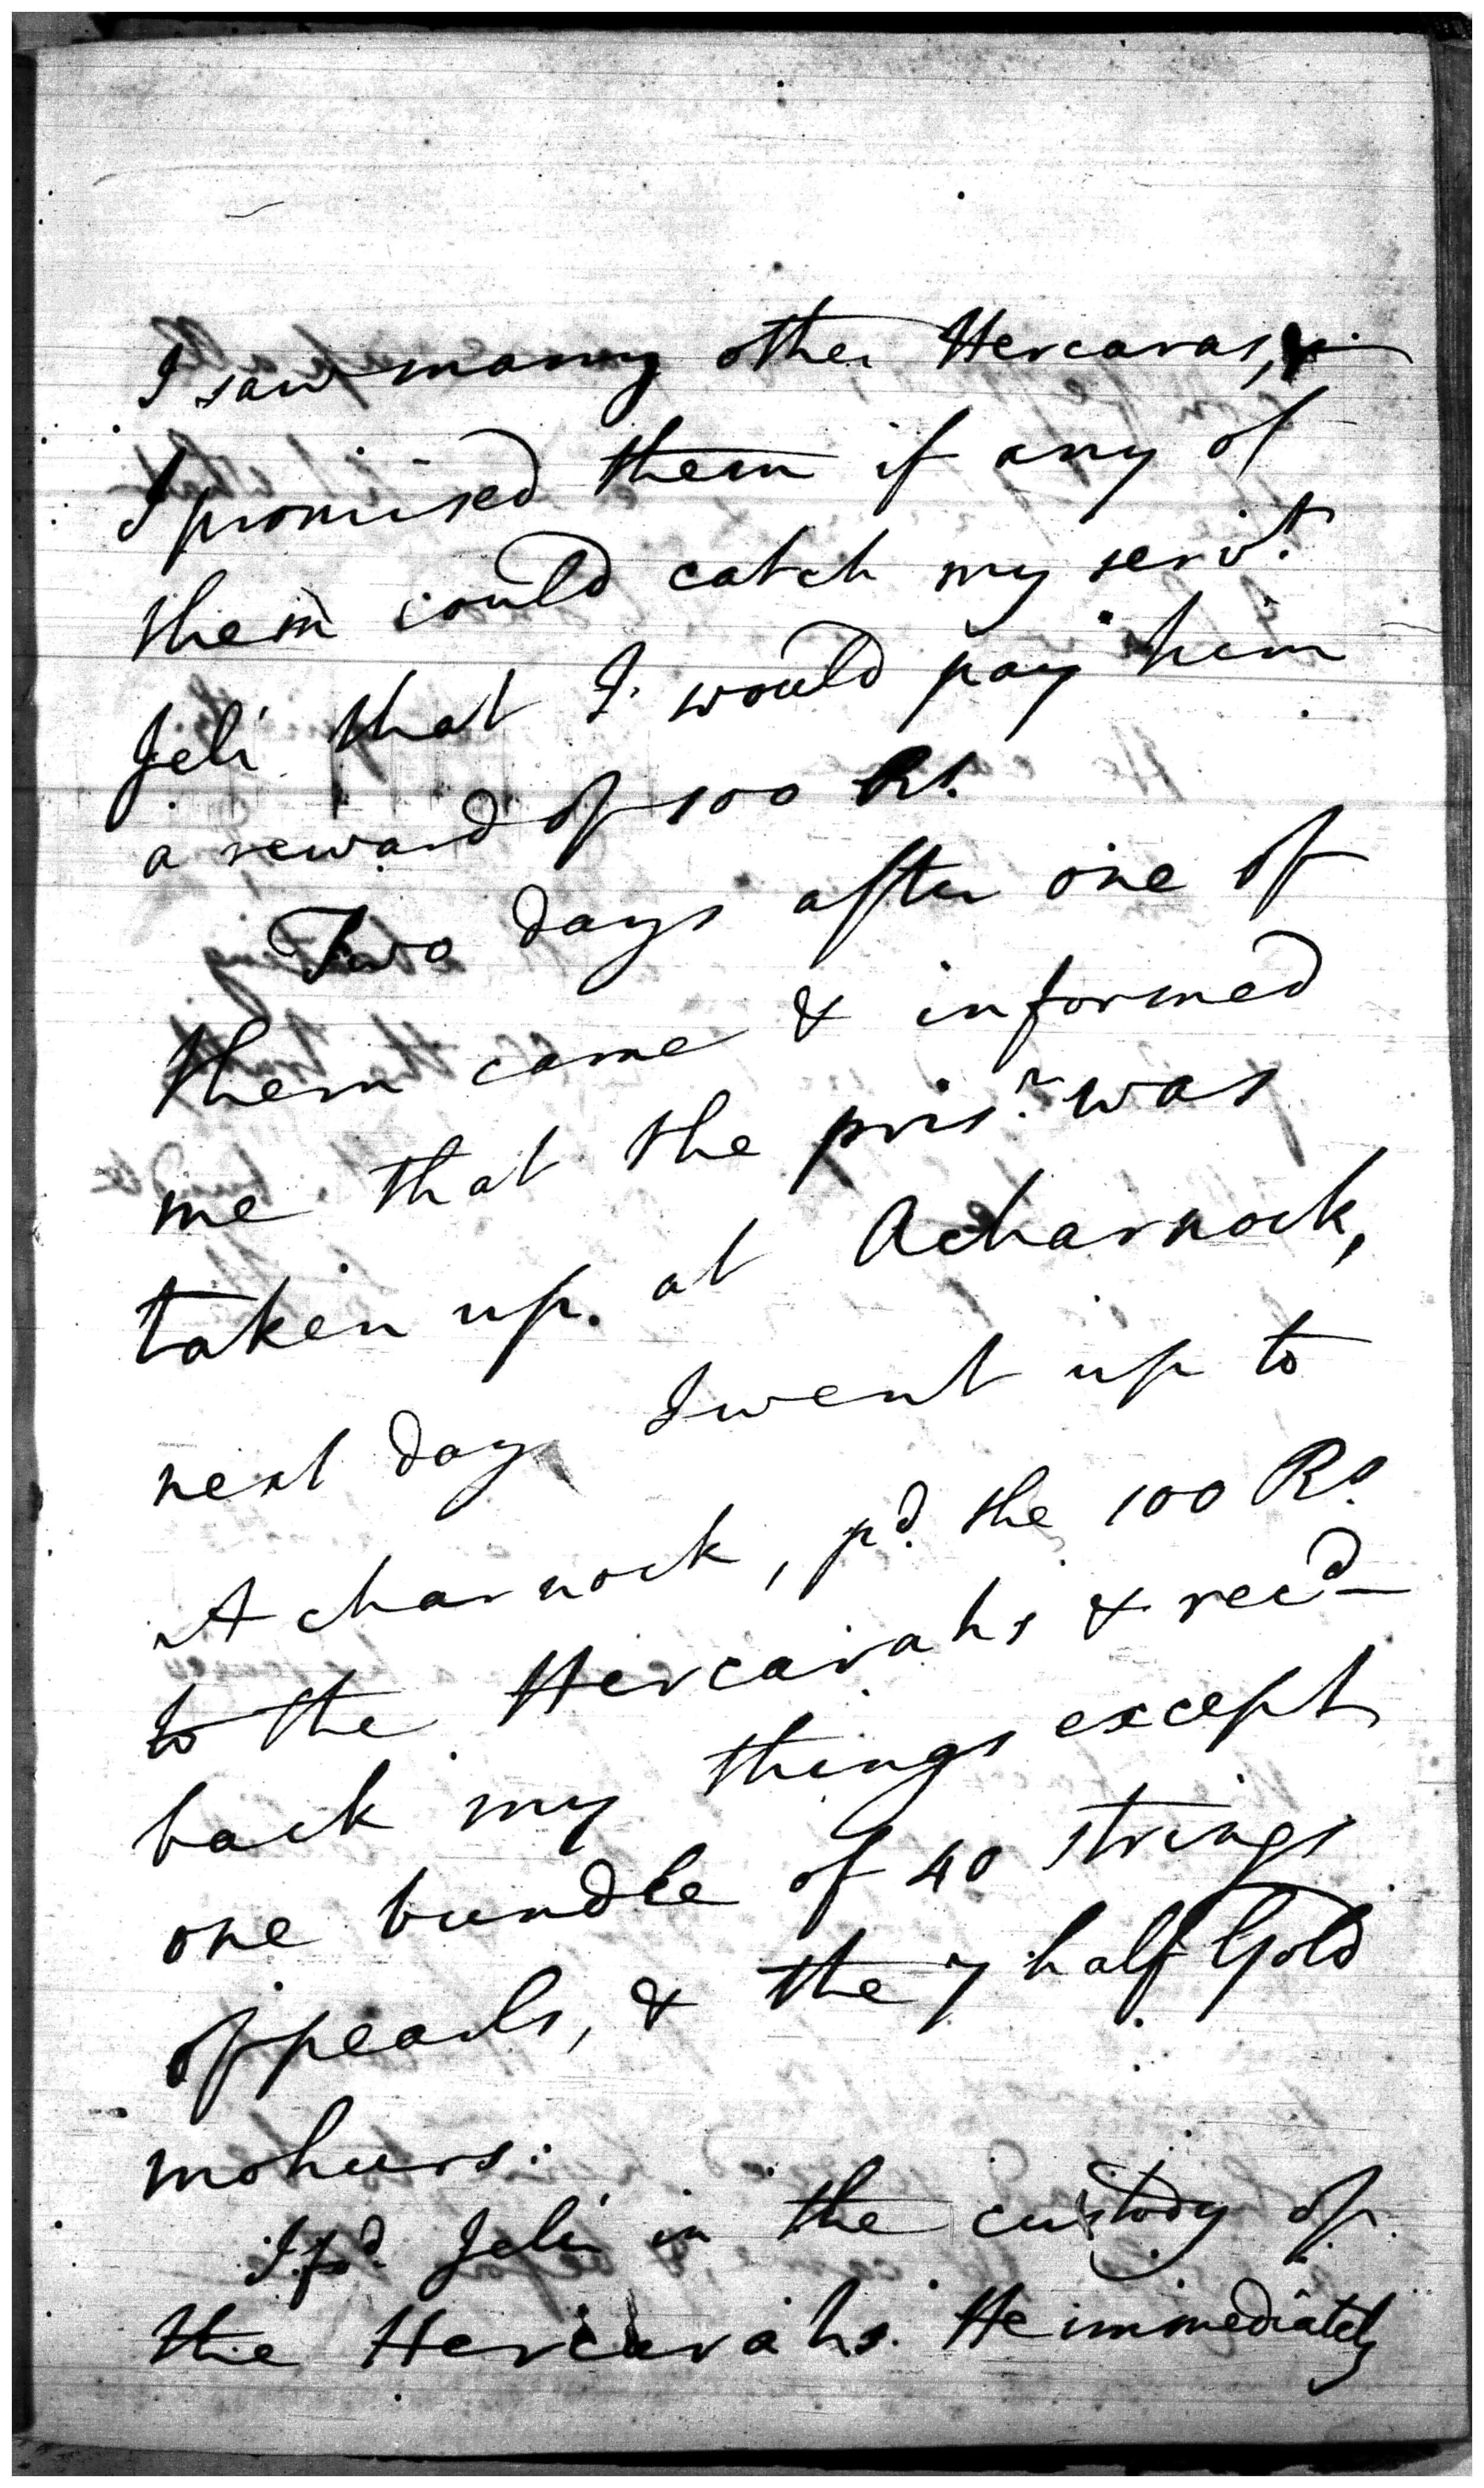 I saw many other Hercaras, &
I promised them if any of
them could catch my serv.t
Jeli that I would pay him
a reward of 100 Rs.
Two days after one of
them came & informed
me that the pris.r was
taken up. at Acharnock,
next day I went up to
Acharnock, pd. the 100 Rs.
to the Hercarahs & recd
back my things except
one bundle of 40 strings
of pearls, & the 7 half Gold
mohurs.
I fd. Jeli in the custody of
the Hercarahs. He immediately